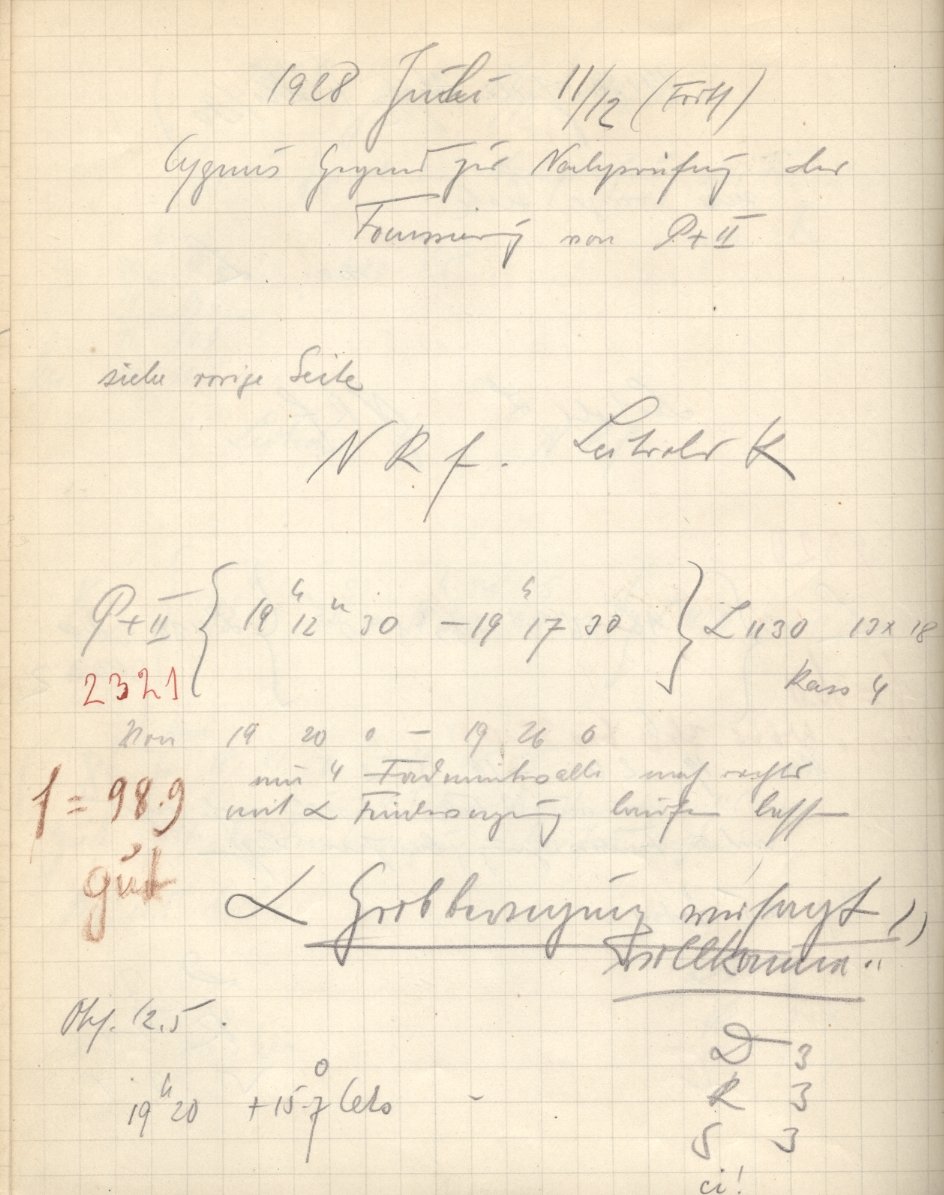 1928 Juli 11/12 (Forts)
Cygnus Gegend zur Nachprüfung der
Focussierung von P+II
siehe vorige Seite
N R f. Leitrohr K
P+II { 19h 12m 30 – 19h 17 30 } L 1130 13 x 18
2321 Kass 4
Von 19 20 0 – 19 26 0
f = 98.9 um 4 Fadenintervalle nach rechts
mit α Feinbewegung laufen lassen
gut
α Grobbewegung versagt
vollkommen!!
Obj. 12.5
D 3
19h 20 +15.7° Cels – R 3
S 3
ci!